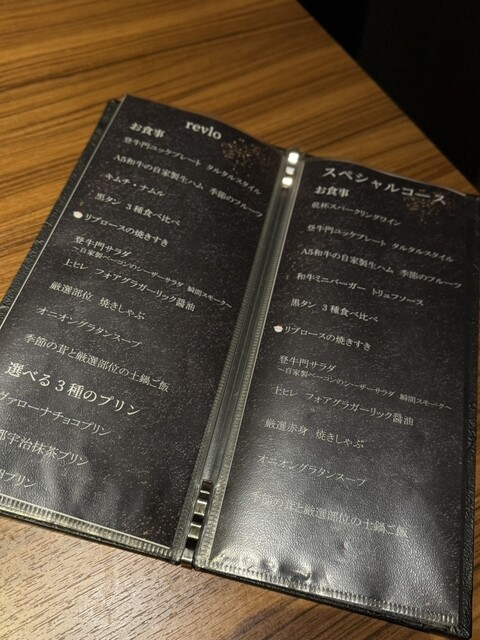 revlo
お食事
登牛門ユッケプレート タルタルスタイル
A5和牛の自家製生ハム 季節のフルーツ
キムチ・ナムル
黒タン 3種食べ比べ
リブロースの焼きすき
登牛門サラダ
〜自家製ベーコンのシーザーサラダ 瞬間スモーク〜
上ヒレ フォアグラガーリック醤油
厳選部位 焼きしゃぶ
オニオングラタンスープ
季節の茸と厳選部位の土鍋ご飯
選べる3種のプリン
ヴァローナチョコプリン
都宇治抹茶プリン
プリン
スペシャルコース
お食事
乾杯スパークリングワイン
登牛門ユッケプレート タルタルスタイル
A5和牛の自家製生ハム 季節のフルーツ
和牛ミニバーガー トリュフソース
黒タン 3種食べ比べ
リブロースの焼きすき
登牛門サラダ
〜自家製ベーコンのシーザーサラダ 瞬間スモーク〜
上ヒレ フォアグラガーリック醤油
厳選赤身 焼きしゃぶ
オニオングラタンスープ
季節の茸と厳選部位の土鍋ご飯